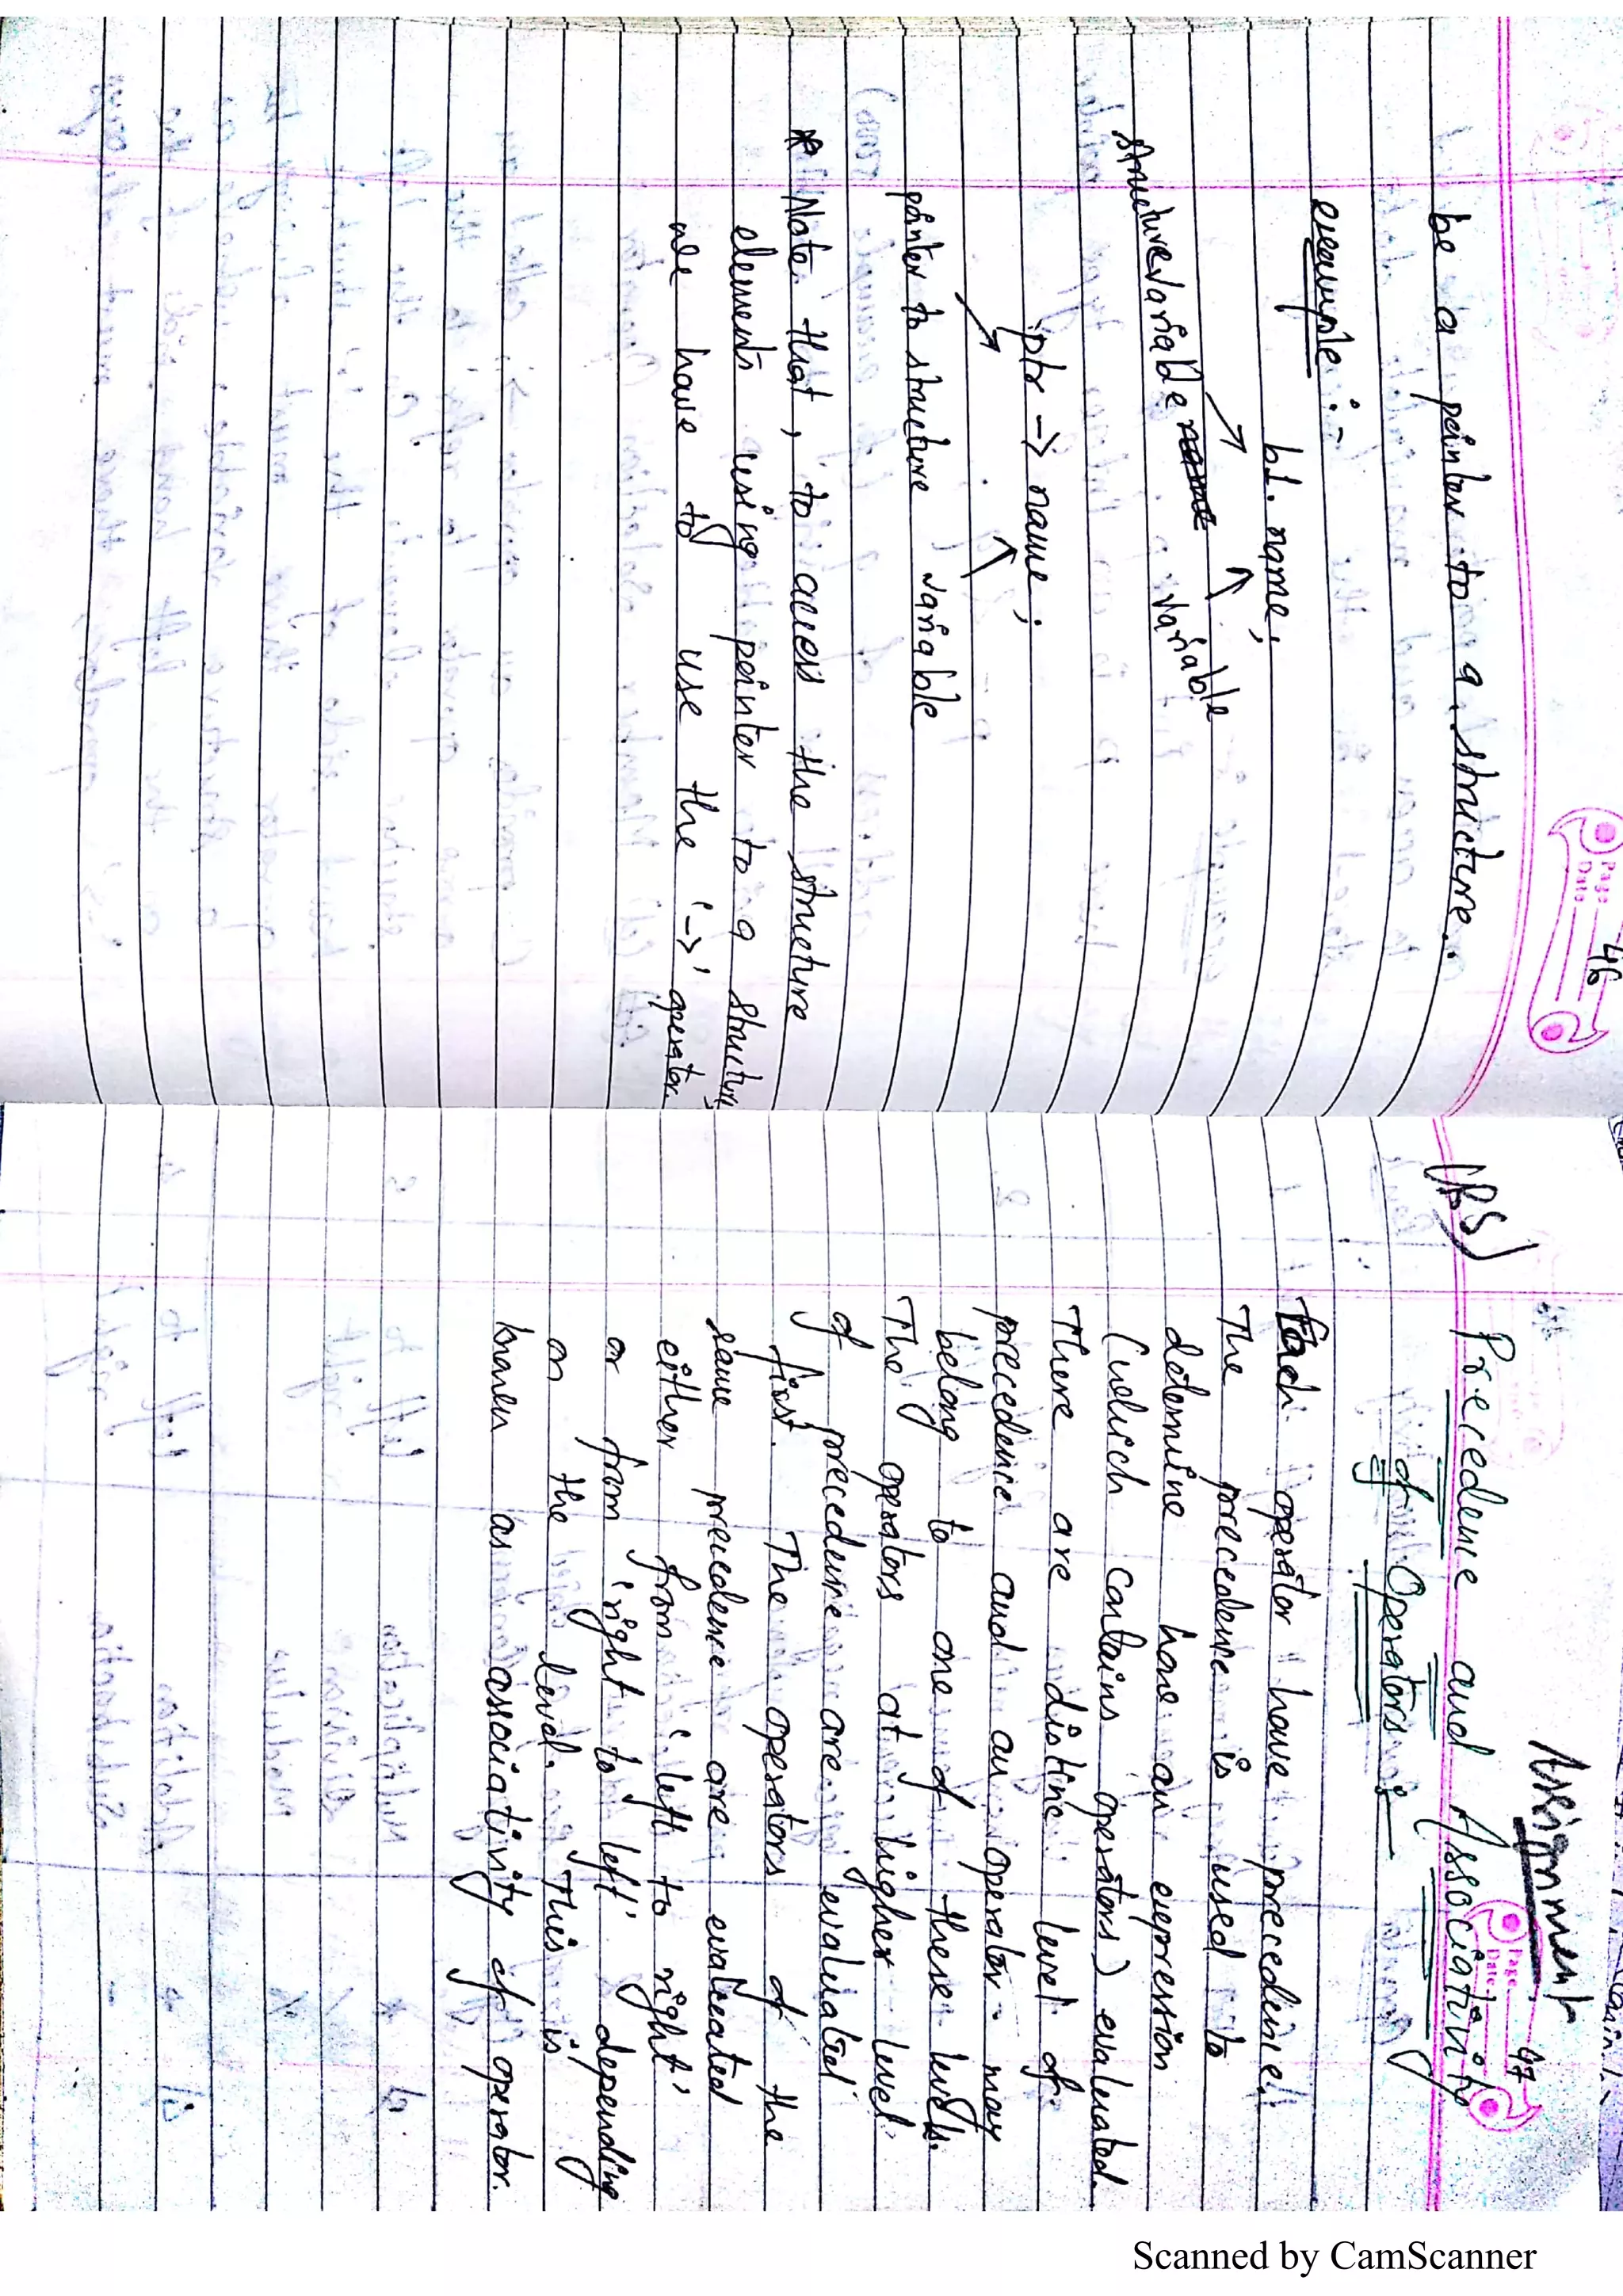 46
be a pointer to a structure.
example :-
b1. name;
structure variable name . variable
ptr -> name;
pointer to structure variable
* Note that, to access the structure
elements using pointer to a structure,
we have to use the '->' operator.
Page
Date
Assignment
47
Page
Date
Precedence and Associativity
of Operators :-
Each operator have precedence.
The precedence is used to
determine how an expression
(which contains operators) evaluated.
There are distinc level of
precedence and an operator may
belong to one of these levels.
The operators at higher level
of precedence are evaluated
first. The operators of the
same precedence are evaluated
either from 'left to right'
or from 'right to left' depending
on the level. This is
known as associativity of operator.
Scanned by CamScanner